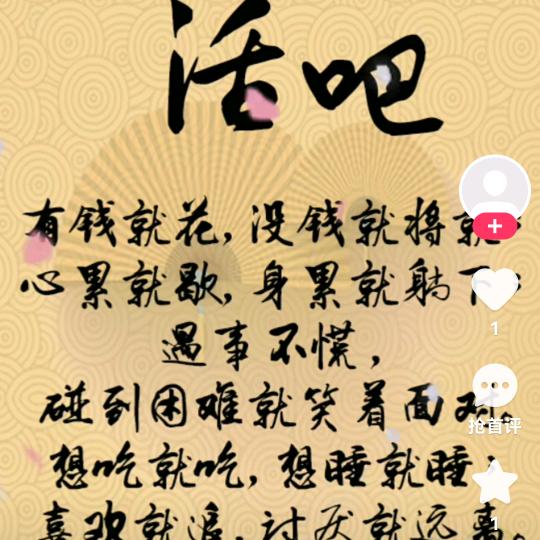 活吧
有钱就花,没钱就将就
心累就歇,身累就躺下
遇事不慌,
碰到困难就笑着面对。
想吃就吃,想睡就睡,
喜欢就追,讨厌就远离。
1
抢首评
1